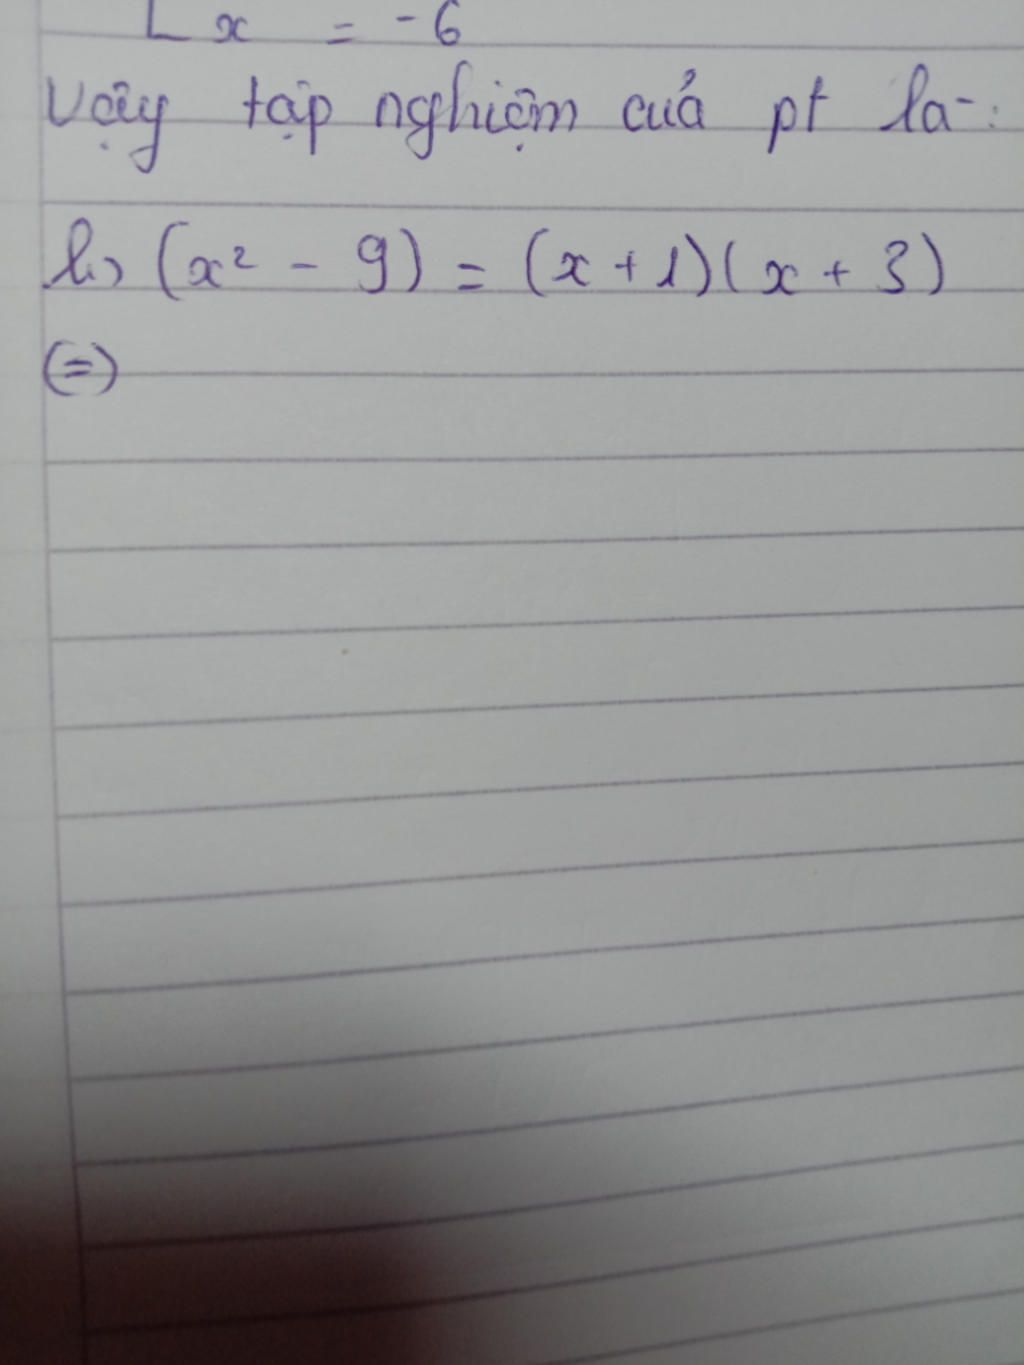 x = -6
Vậy tập nghiệm của pt là :
b, (x² - 9) = (x + 1)(x + 3)
(=)